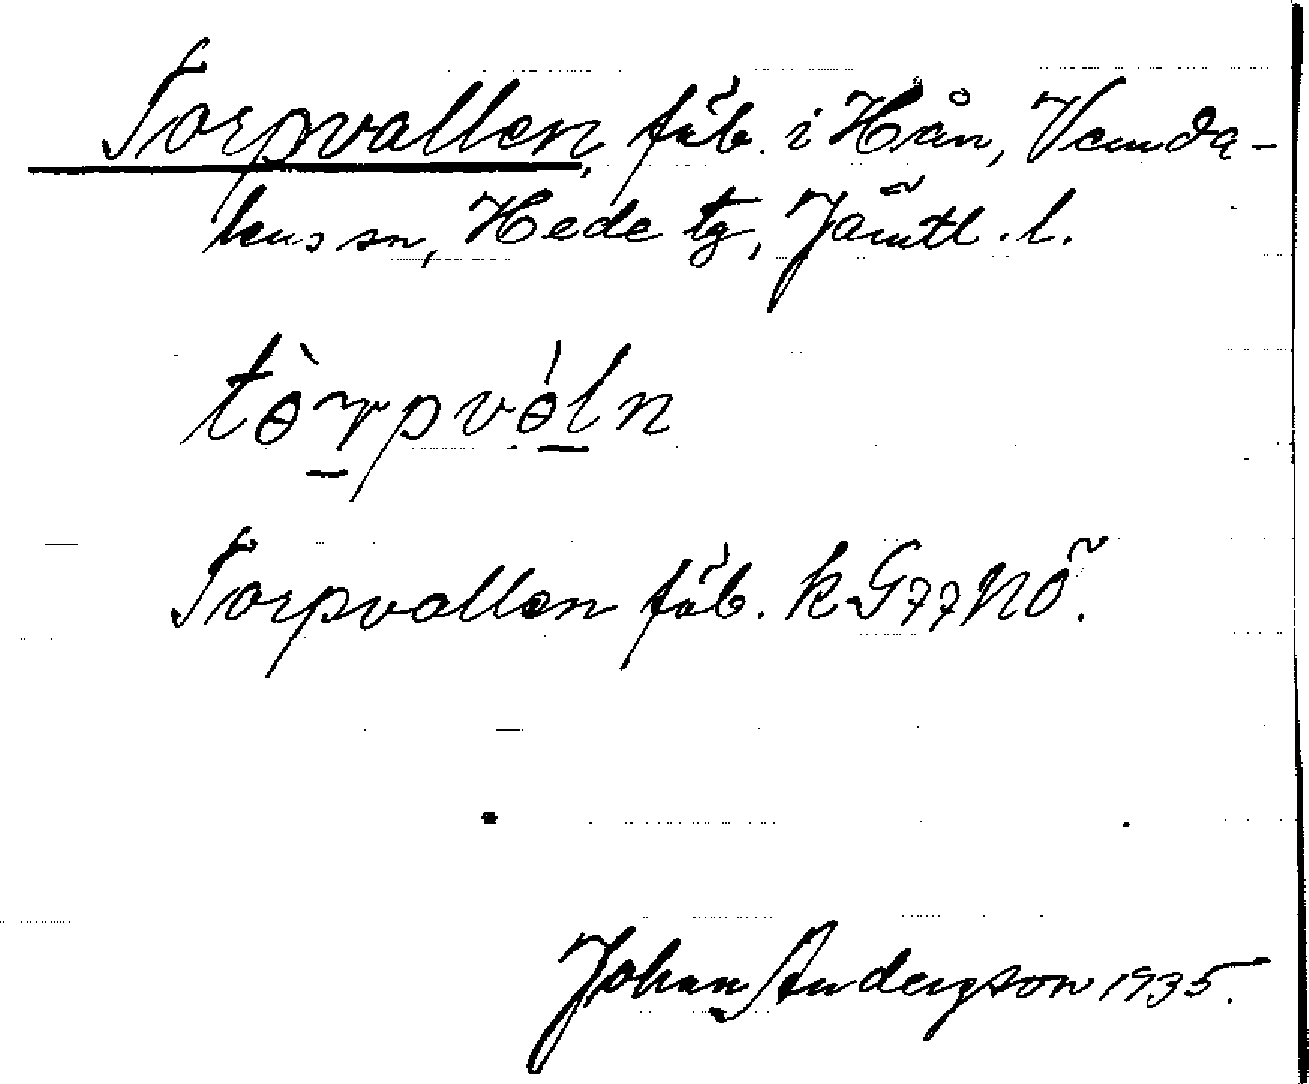 Torpvallen, fäb. i Hån, Vemda-
lens sn, Hede tg, Jämtl. l.
tɵ̀rpvɵ́ln
Torpvallen fäb. k G77NÖ.
Johan Anderson 1935.